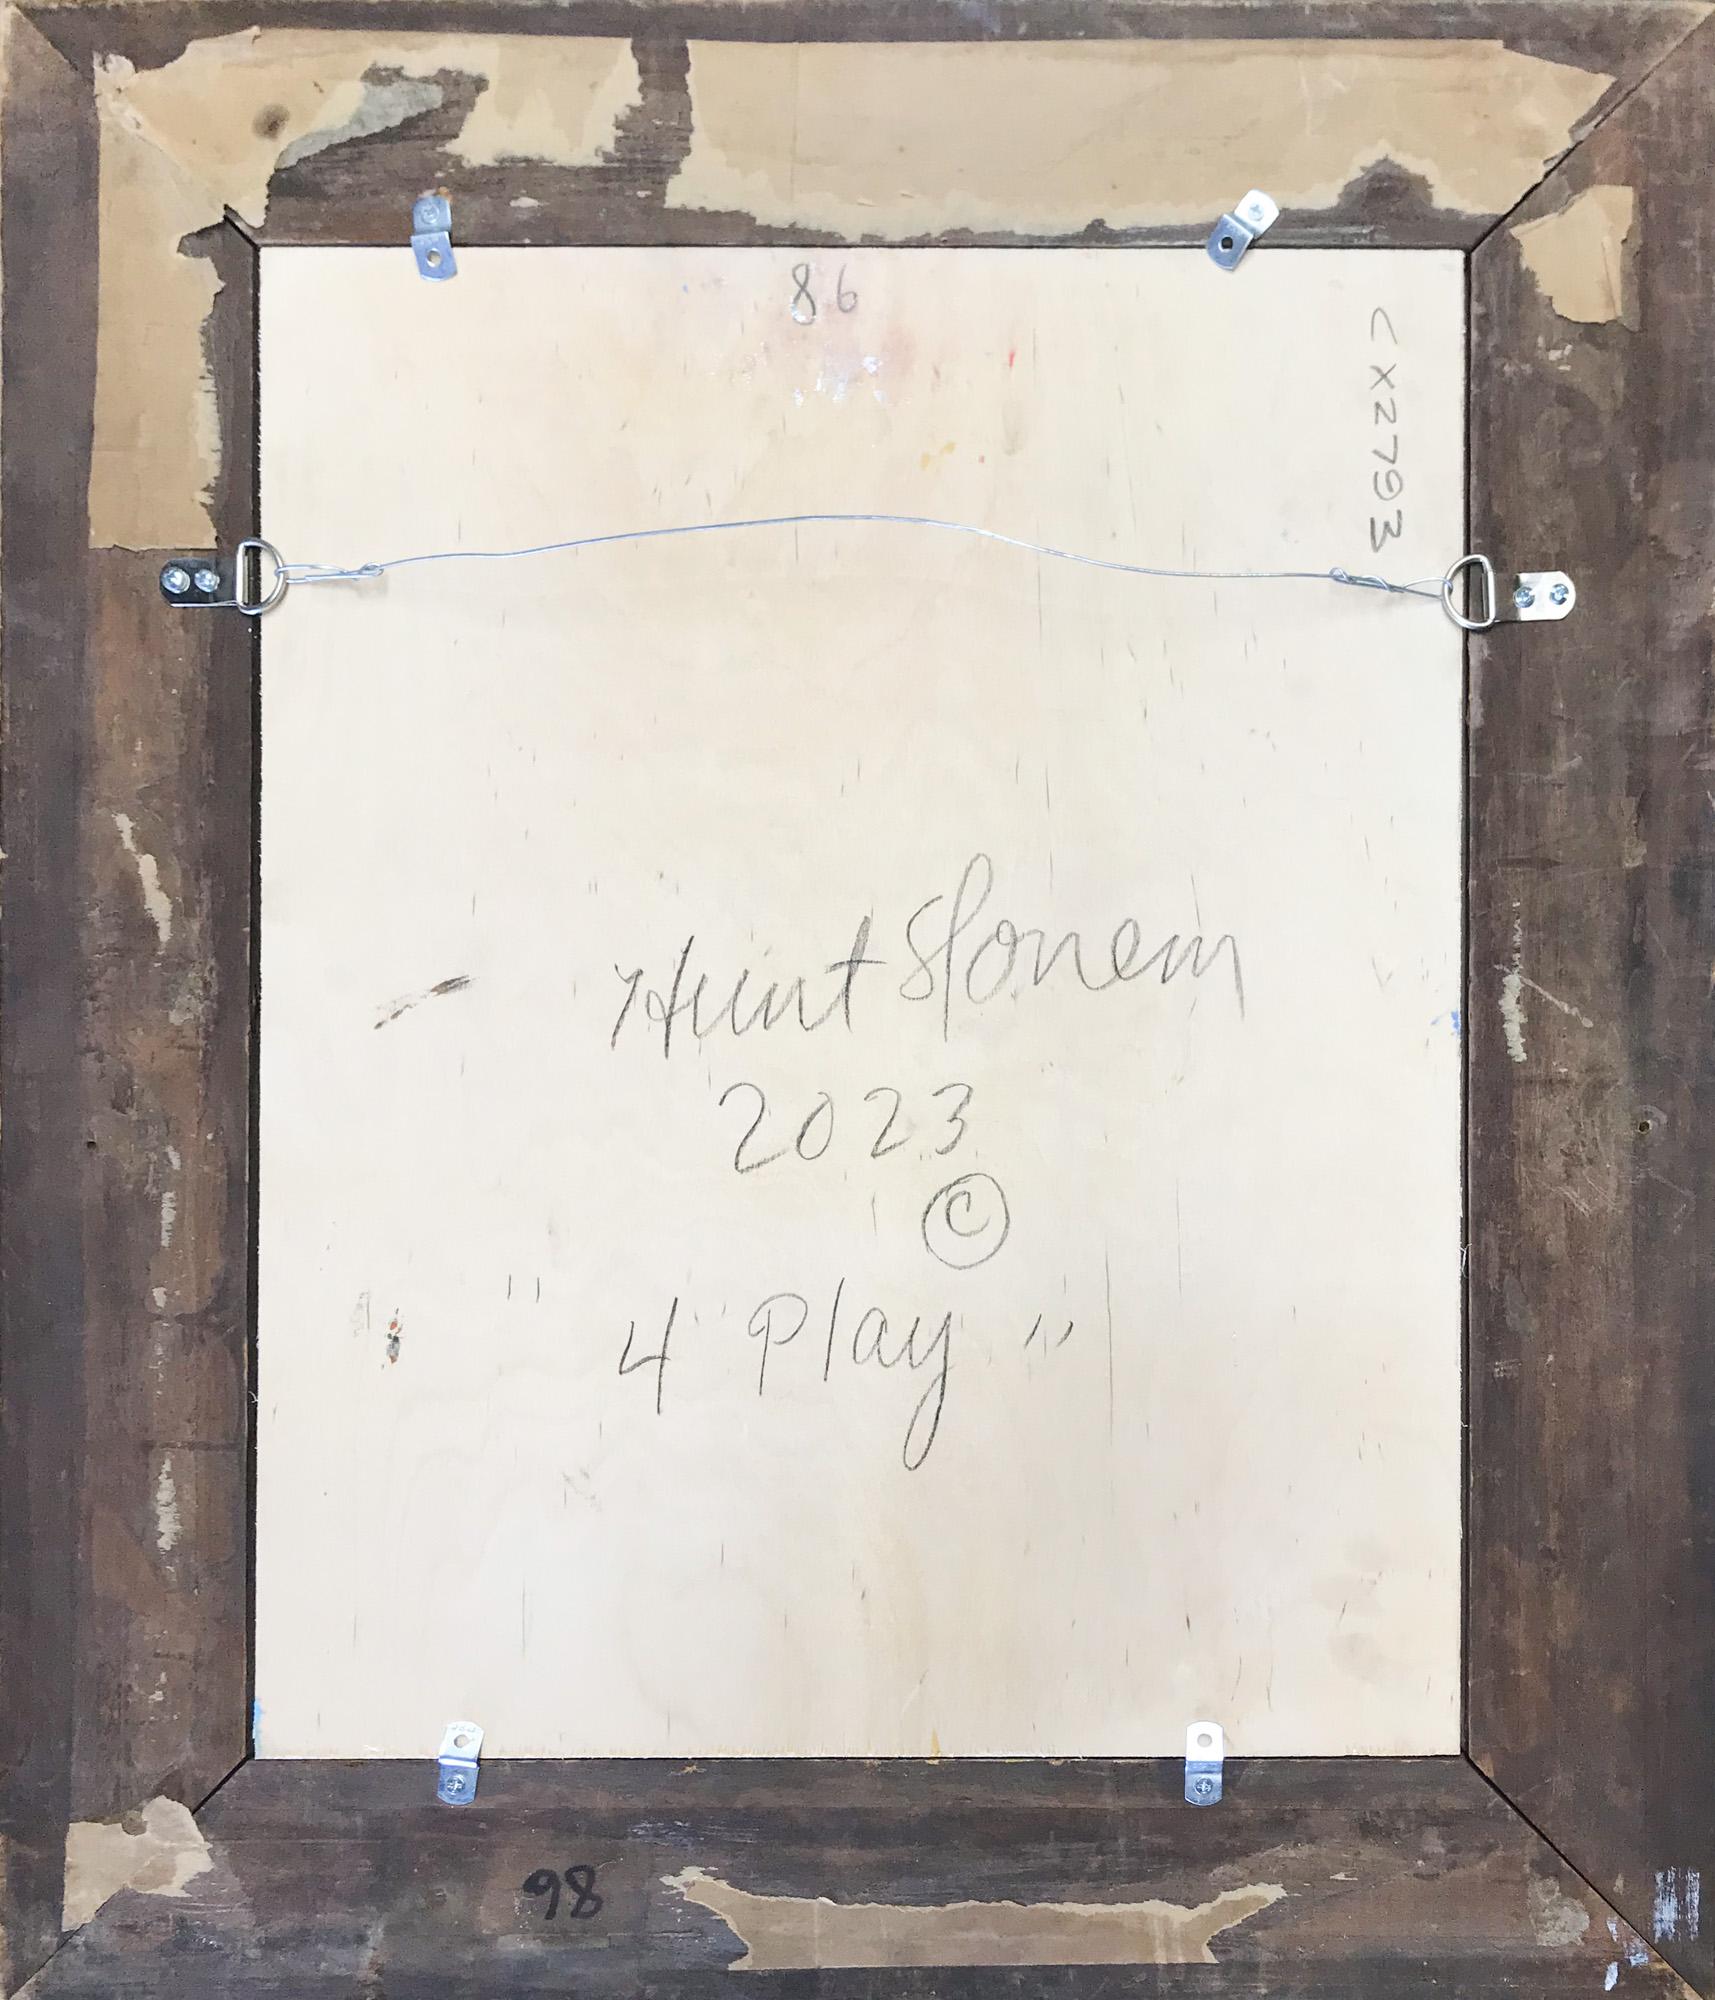 86
CX2793
Hunt Slonem
2023
©
"4 Play"
98